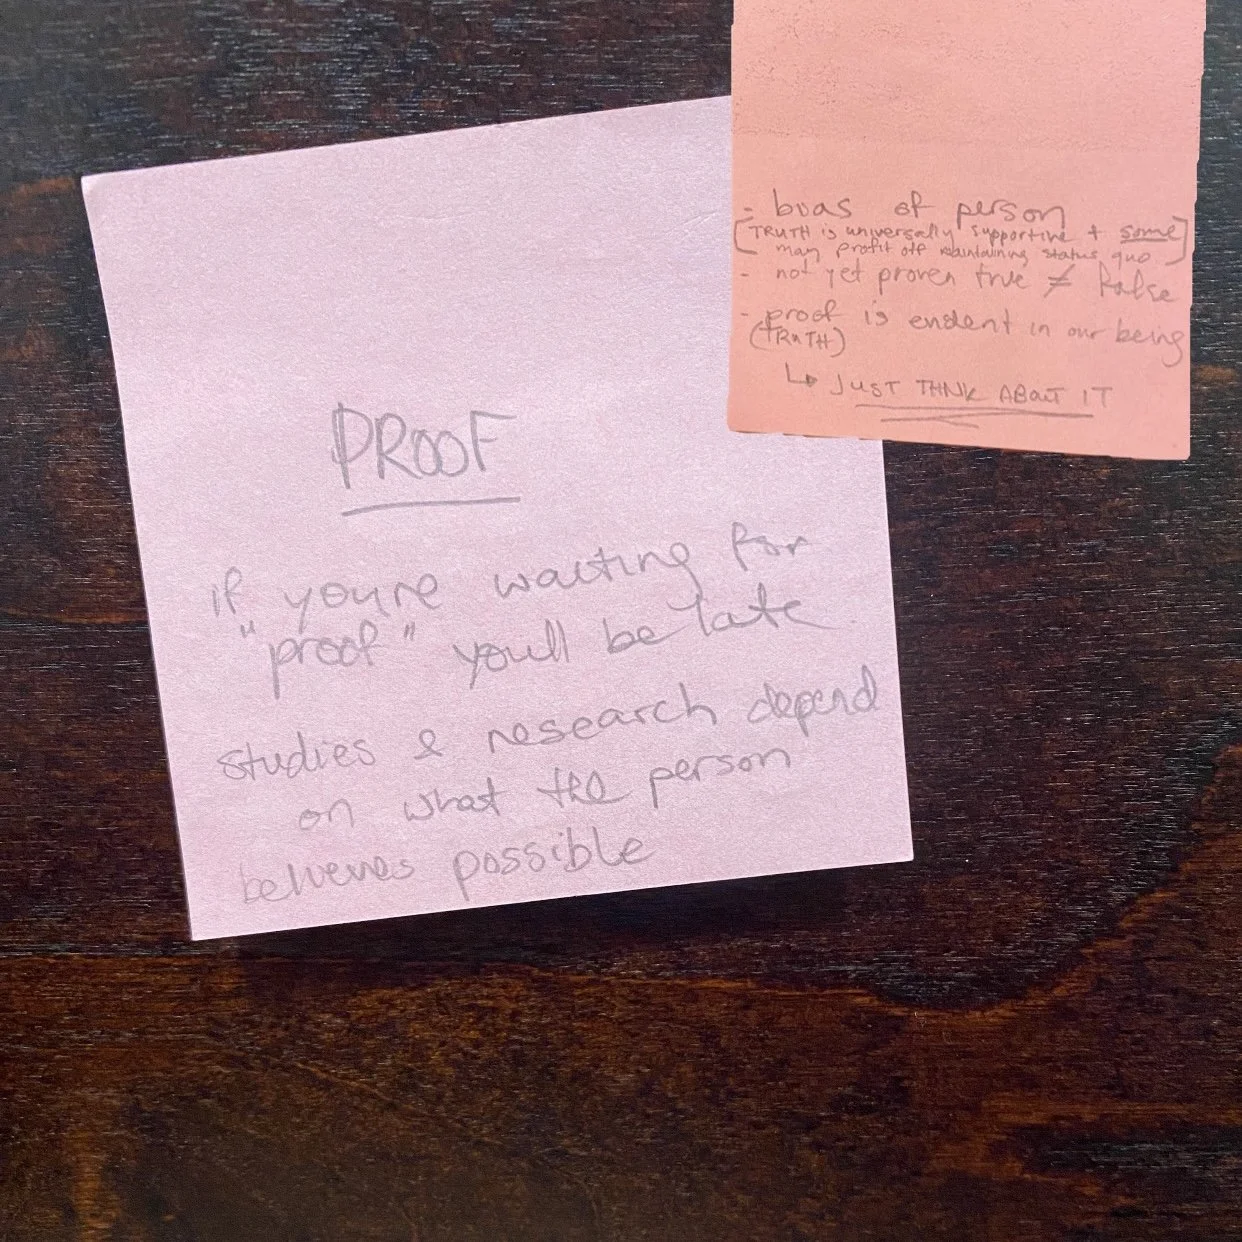 - bias of person
[TRUTH is universally supportive + some
may profit off maintaining status quo]
- not yet proven true ≠ false
- proof is evident in our being
(TRUTH)
↳ JUST THINK ABOUT IT
PROOF
if you're waiting for
"proof" you'll be late.
studies & research depend
on what the person
believes possible